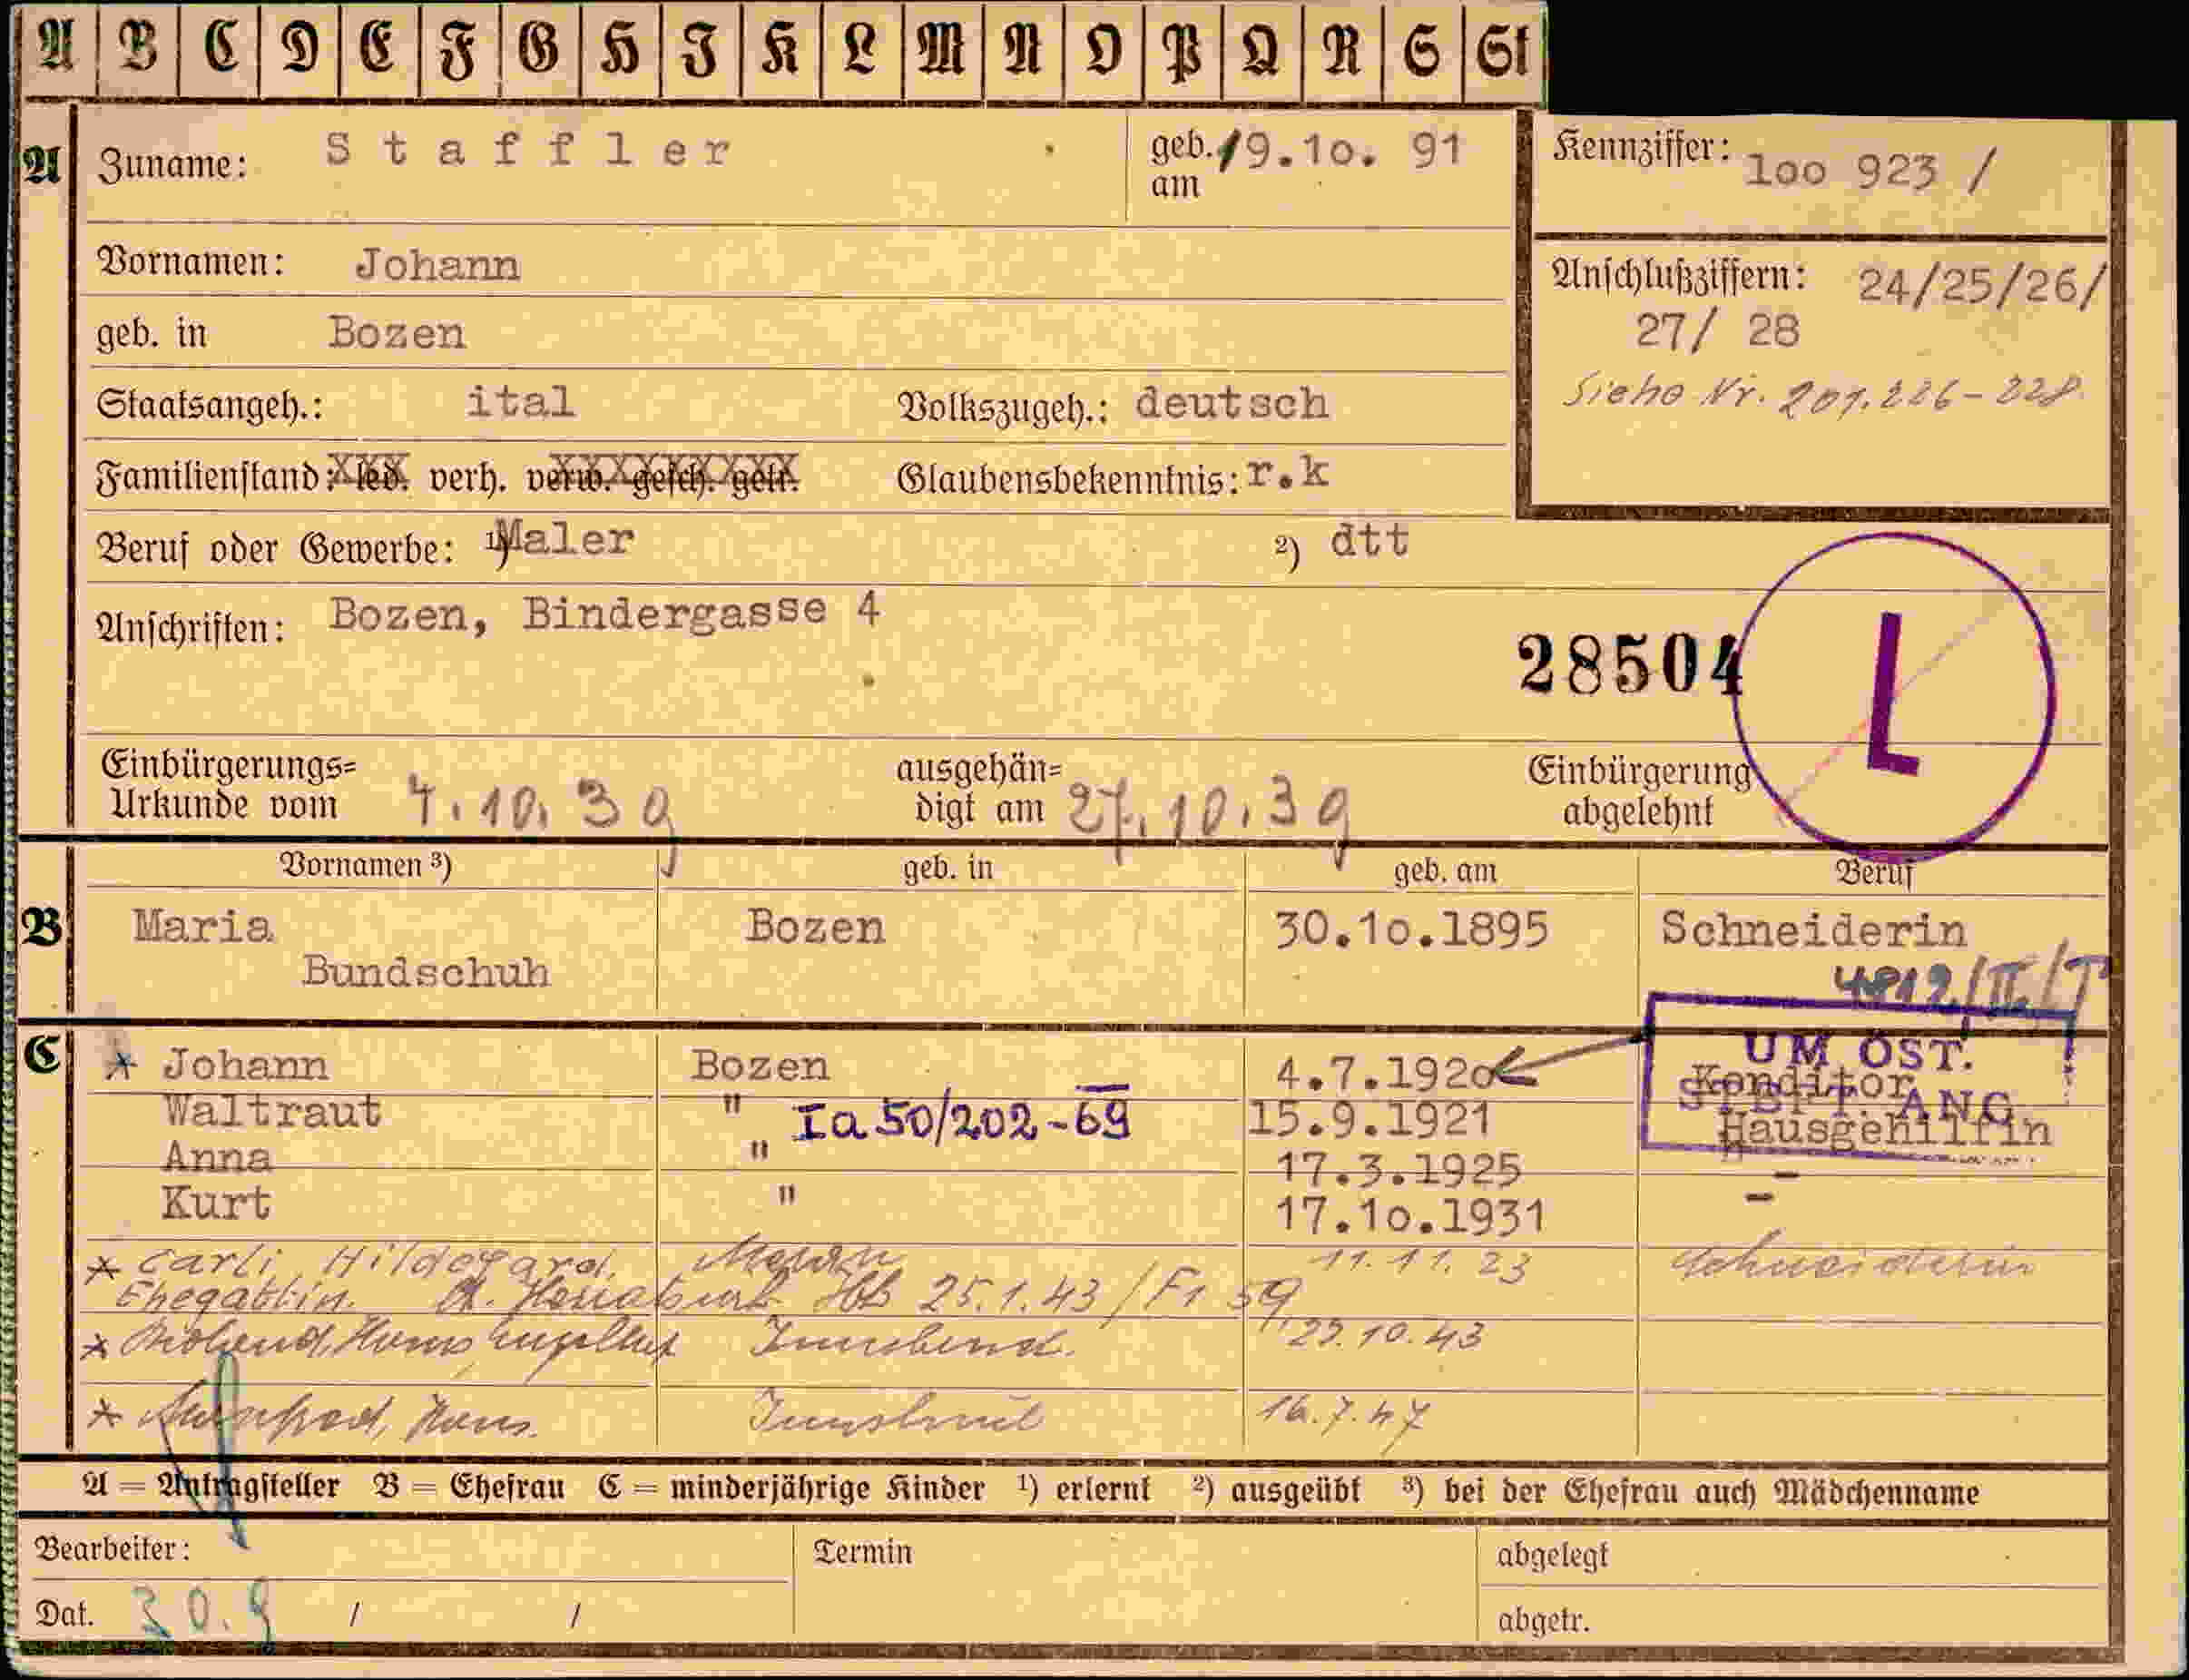 A B C D E F G H I K L M N O P Q R S St
A Zuname: Staffler geb. am 19.10. 91 Kennziffer: 1oo 923 /
Vornamen: Johann
Anschlußziffern: 24/25/26/
27/ 28
geb. in Bozen
Siehe Nr. 201.226-228.
Staatsangeh.: ital Volkszugeh.: deutsch
Familienstand: led. verh. verw. gesch. getr. Glaubensbekenntnis: r.k
Beruf oder Gewerbe: 1) Maler 2) dtt
Anschriften: Bozen, Bindergasse 4
28504 L
Einbürgerungs=
Urkunde vom 4.10.39
ausgehän=
digt am 27.10.39
Einbürgerung
abgelehnt
Vornamen 3) geb. in geb. am Beruf
B Maria Bozen 30.1o.1895 Schneiderin
Bundschuh
4812/II/T
UM ÖST.
ST. ANG
C * Johann Bozen 4.7.192o Konditor
Waltraut " Ia 50/202-69 15.9.1921 Hausgehilfin
Anna " 17.3.1925 -
Kurt " 17.1o.1931 -
* Carli Hildegard. Meran 11.11.23 Schneiderin
Ehegattin. 25.1.43 / F1 59
* Hans 29.10.43
* Manfred, Hans. Innsbruck 16.7.47
A = Antragsteller B = Ehefrau C = minderjährige Kinder 1) erlernt 2) ausgeübt 3) bei der Ehefrau auch Mädchenname
Bearbeiter: Termin abgelegt
Dat. 30.9 / / abgetr.